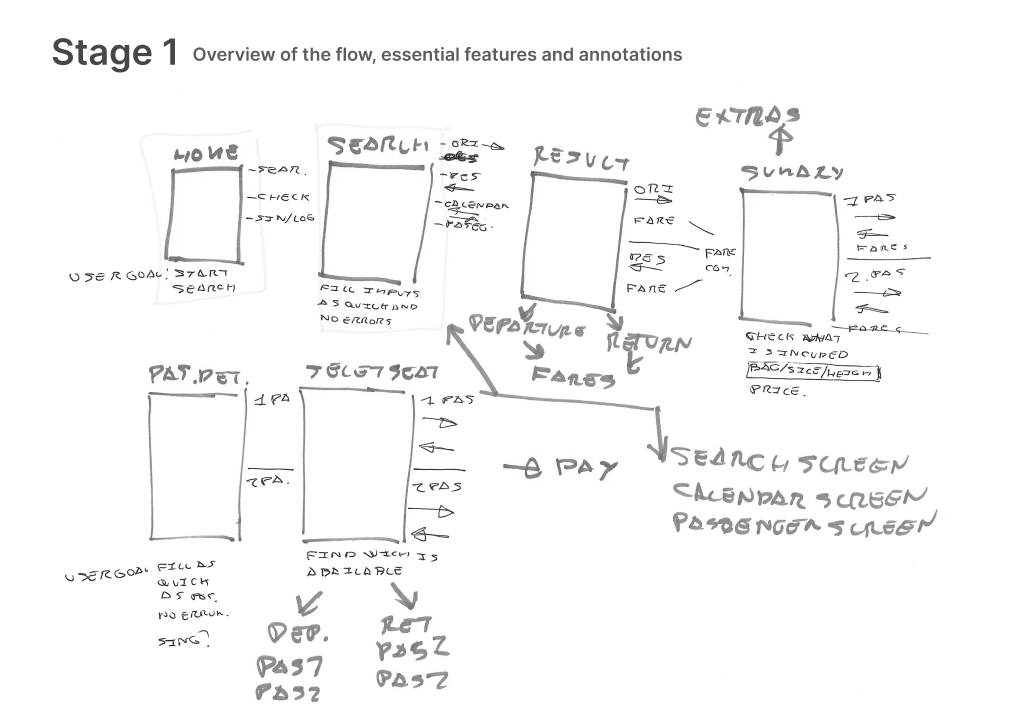 Stage 1 Overview of the flow, essential features and annotations
EXTRAS
HOME
- SEAR.
- CHECK
- SIN/LOG
USER GOAL: START
SEARCH
SEARCH
- ORI
- DES
- CALENDAR
FILL INPUTS
AS QUICK AND
NO ERRORS.
RESULT
ORI
FARE
DES
FARE
FARE
CON.
DEPARTURE
RETURN
FARES
SUMARY
1 PAS
FARES
2. PAS
FARES
CHECK WHAT
IS INCUDED
BAG/SICE/HEIGH
PRICE.
PAS.DET.
1 PA
2PA.
USER GOAL FILL AS
QUICK
AS POS.
NO ERROR.
SING?
SELET SEAT
1 PAS
2 PAS
FIND WICH IS
ABAILABLE
DEP.
PAS 1
PAS 2
RET
PAS 2
PAS 2
PAY
SEARCH SCREEN
CALENDAR SCREEN
PASSENGER SCREEN